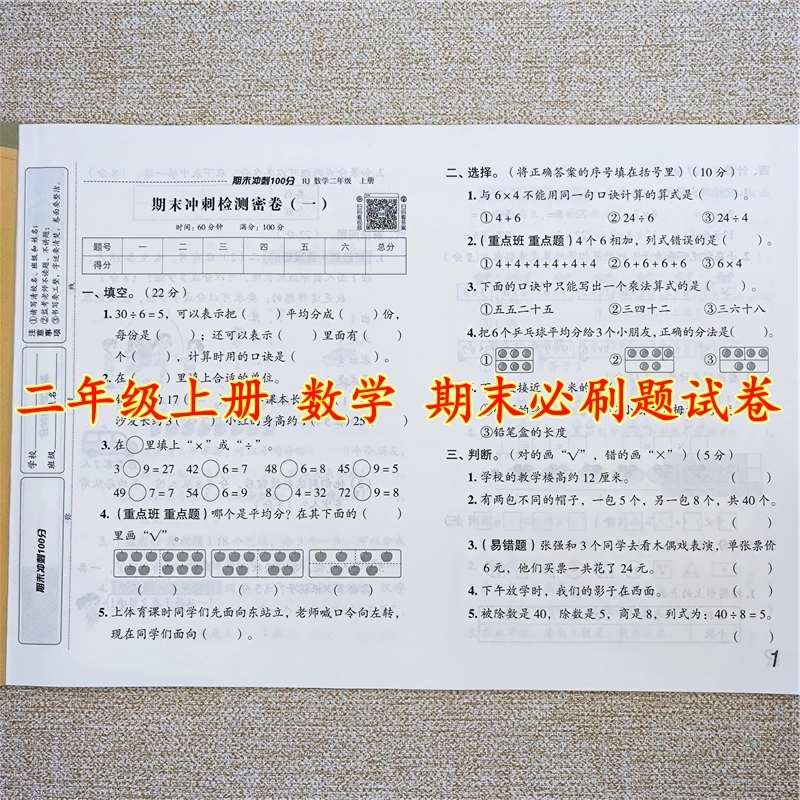 期末冲刺100分 RJ 数学二年级 上册
期末冲刺检测密卷（一）
时间：60分钟 满分：100分
题号 一 二 三 四 五 六 总分
得分
一、填空。（22分）
1. 30÷6=5，可以表示把（ ）平均分成（ ）份，
每份是（ ）；还可以表示（ ）里面有（ ）
个（ ），计算时用的口诀是（ ）。
2. 在（ ）里填上合适的单位。
3. 在○里填上“×”或“÷”。
3○9=27 42○6=7 48○6=8 45○9=5
49○7=7 54○6=9 8○4=32 72○9=8
4.（重点班 重点题）哪个是平均分？在其下面的（ ）
里画“√”。
（ ） （ ） （ ）
5. 上体育课时同学们先面向东站立，老师喊口令向左转，
现在同学们面向（ ）。
二、选择。（将正确答案的序号填在括号里）（10分）
1. 与6×4不能用同一句口诀计算的算式是（ ）。
①4+6 ②24÷6 ③24÷4
2.（重点班 重点题）4个6相加，列式错误的是（ ）。
①4+4+4+4+4+4 ②6+6+6+6 ③6×4
3. 下面的口诀中只能写出一个乘法算式的是（ ）。
①五五二十五 ②三四十二 ③三六十八
4. 把6个乒乓球平均分给3个小朋友，正确的分法是（ ）。
① ② ③
③铅笔盒的长度
三、判断。（对的画“√”，错的画“×”）（5分）
1. 学校的教学楼高约12厘米。 （ ）
2. 有两包不同的帽子，一包5个，另一包8个，共40个。
（ ）
3.（易错题）张强和3个同学去看木偶戏表演，单张票价
6元，他们买票一共花了24元。 （ ）
4. 下午放学时，我们的影子在西面。 （ ）
5. 被除数是40，除数是5，商是8，列式为：40÷8=5。
（ ）
1
注意事项
①请写清校名、班级和姓名；
②监考老师不读题、不讲题；
③书写要工整，字迹要清楚，卷面要整洁。
学校
班级
姓名
期末冲刺100分
二年级上册 数学 期末必刷题试卷